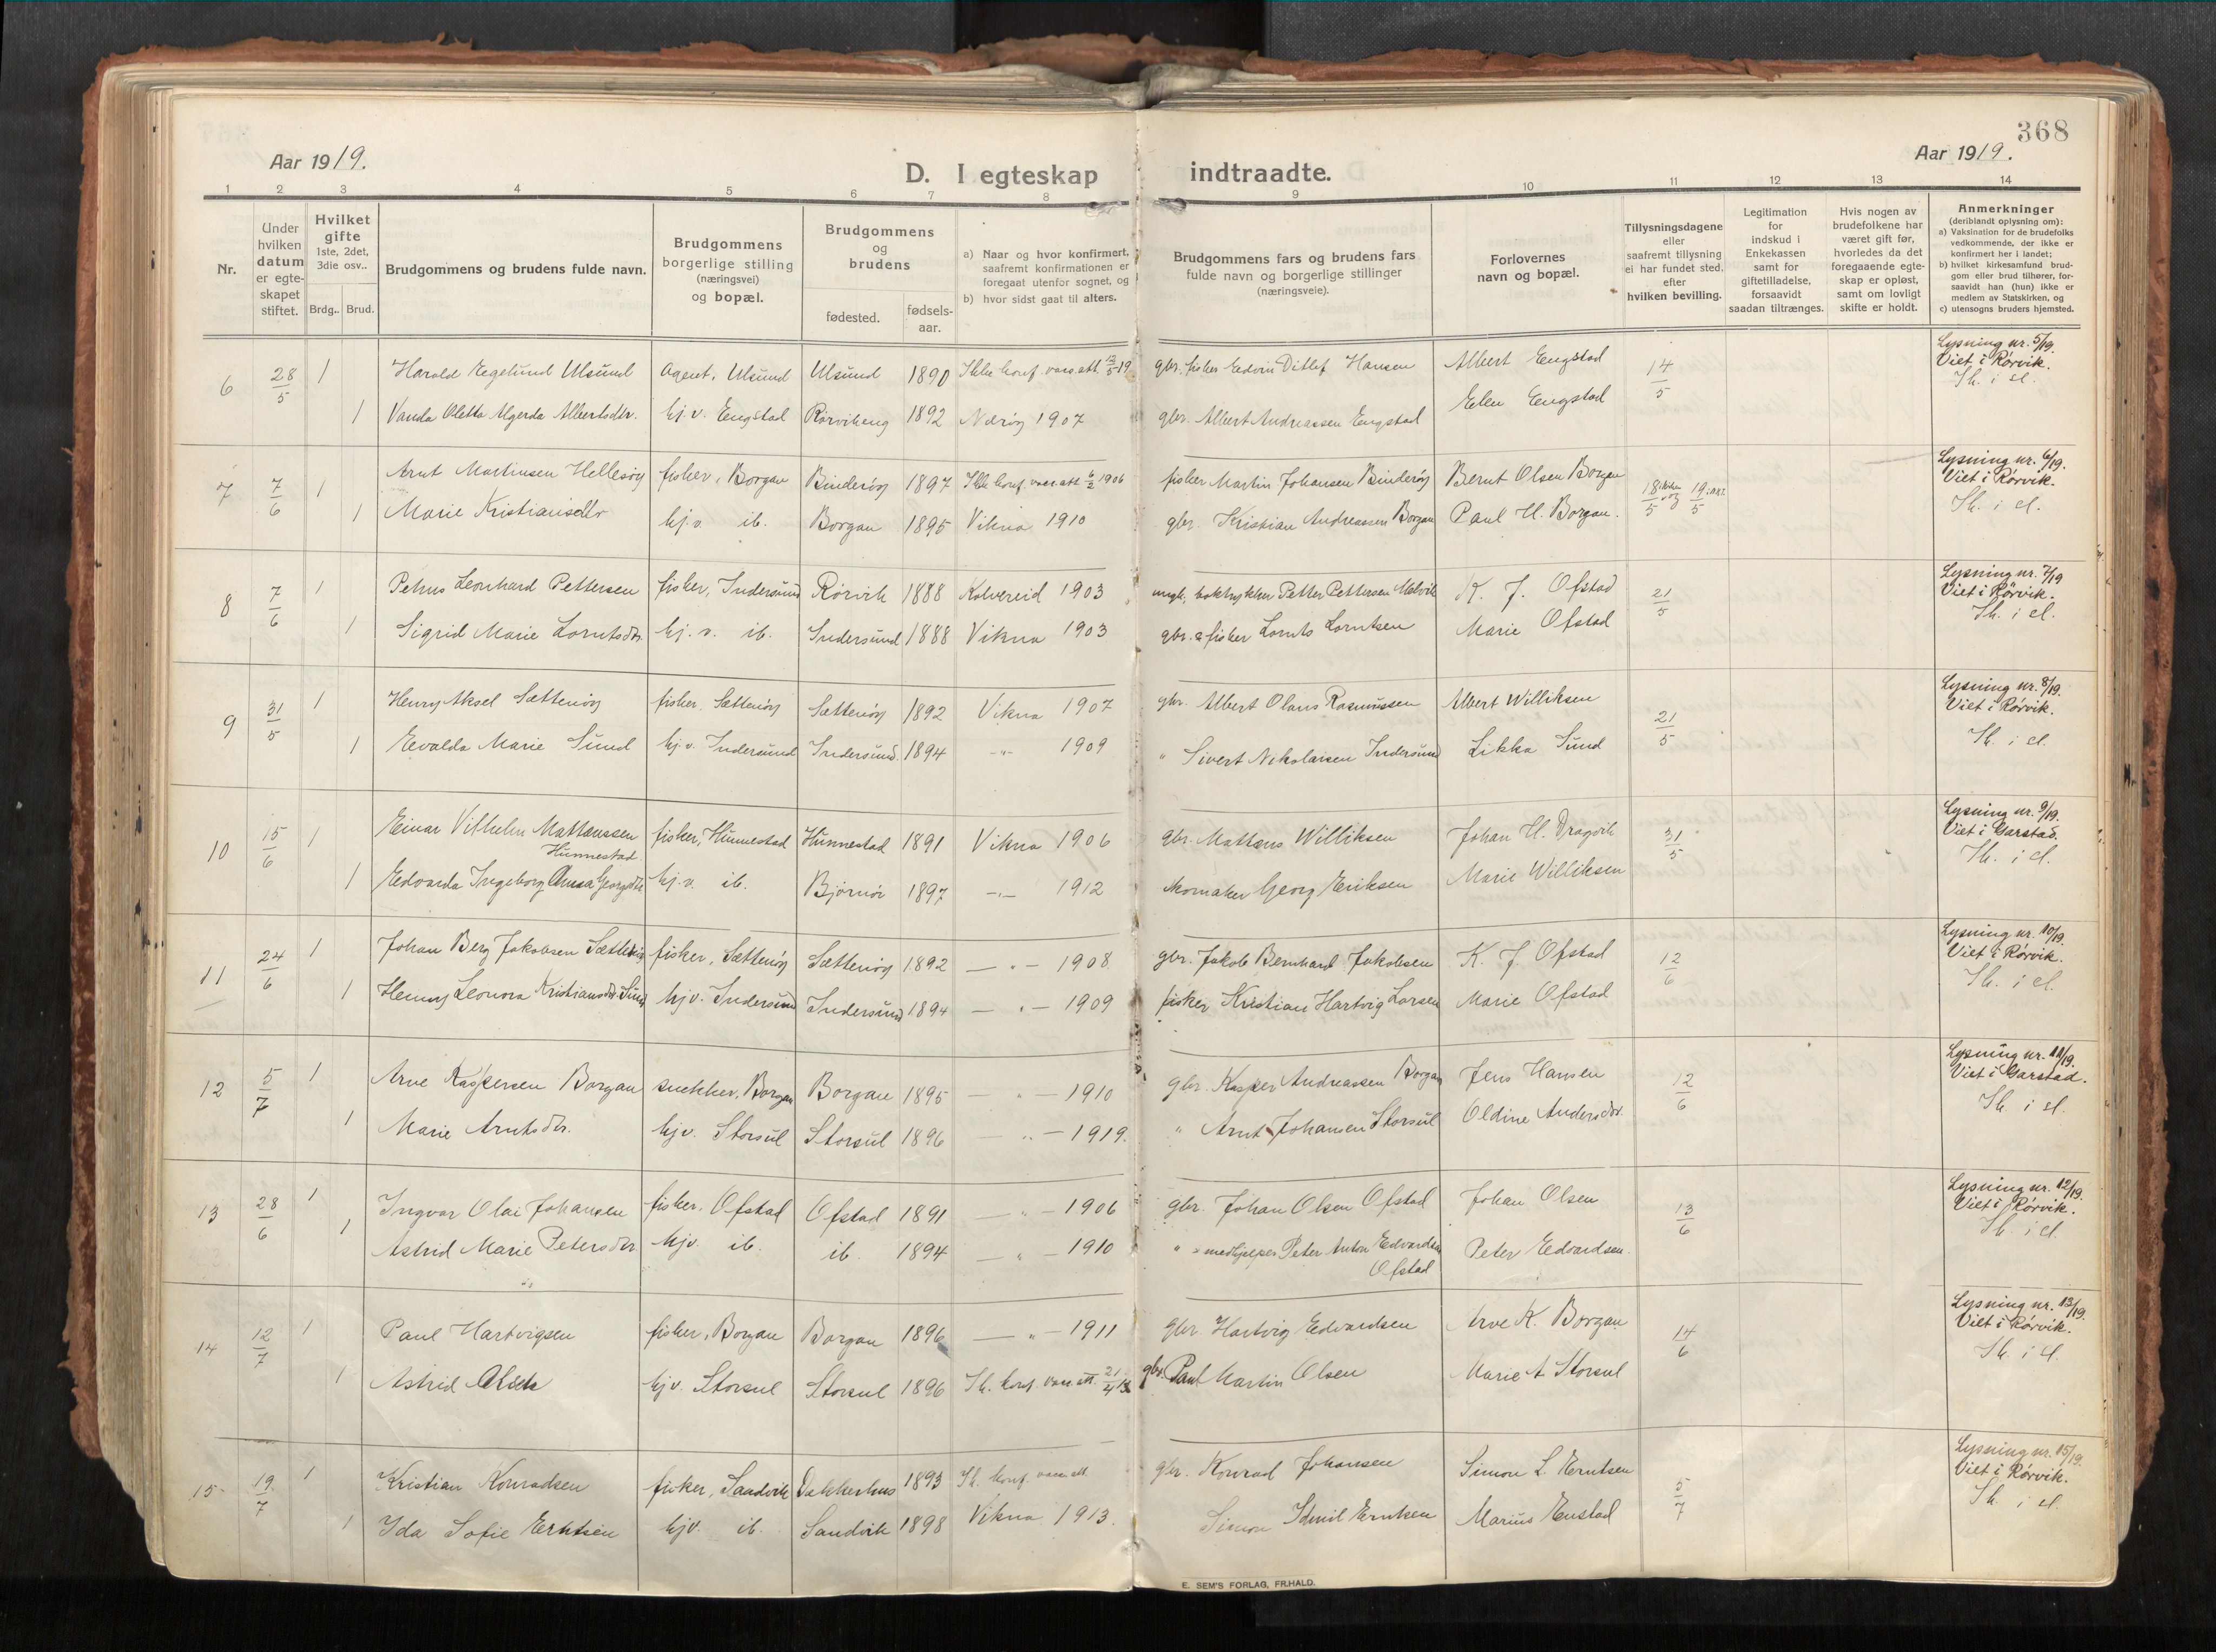 368
Aar 1919.
Aar 1919.
D. I egteskap indtraadte.
1 2 3 4 5 6 7 8 9 10 11 12 13 14
Nr.
Under hvilken datum er egte-skapet stiftet.
Hvilket gifte 1ste, 2det, 3die osv..
Brdg.. Brud.
Brudgommens og brudens fulde navn.
Brudgommens borgerlige stilling (næringsvei) og bopæl.
Brudgommens og brudens
fødested. fødsels-aar.
a) Naar og hvor konfirmert, saafremt konfirmationen er foregaat utenfor sognet, og
b) hvor sidst gaat til alters.
Brudgommens fars og brudens fars fulde navn og borgerlige stillinger (næringsveie).
Forlovernes navn og bopæl.
Tillysningsdagene eller saafremt tillysning ei har fundet sted, efter hvilken bevilling.
Legitimation for indskud i Enkekassen samt for giftetilladelse, forsaavidt saadan tiltrænges.
Hvis nogen av brudefolkene har været gift før, hvorledes da det foregaaende egte-skap er opløst, samt om lovligt skifte er holdt.
Anmerkninger (deriblandt oplysning om):
a) Vaksination for de brudefolks vedkommende, der ikke er konfirmert her i landet;
b) hvilket kirkesamfund brud-gom eller brud tilhører, for-saavidt han (hun) ikke er medlem av Statskirken, og
c) utensogns bruders hjemsted.
6 28/5 1 Harald Egelund Ulsund Agent, Ulsund Ulsund 1890 Ikke konf. vacs.att 13/5 19 gbr. fisker Edvin Ditlef Hansen Albert Engstad 14/5 Lysning nr. 5/19. Viet i Rørvik.
1 Vanda Oletta Algerda Albertsdtr. hj.v. Engstad Rørvikeng 1892 Nærøy 1907 gbr. Albert Andreassen Engstad Ellen Engstad
7 7/6 1 Arnt Martinsen Hellesøy fisker, Borgan Binderöy 1897 Ikke konf. vacs att 6/2 1906 fisker Martin Johansen Binderöy Bernt Olsen Borgan 18/5 og 19/5 Lysning nr. 6/19. Viet i Rørvik.
1 Marie Kristiansdtr hj.v. ib. Borgan 1895 Vikna 1910 gbr. Kristian Andreassen Borgan Paul H. Borgan.
8 7/6 1 Petrus Leonhard Pettersen fisker, Indersund Rörvik 1888 Kolvereid 1903 boktrykker Petter Pettersen Malvik K. J. Ofstad 21/5 Lysning nr. 7/19 Viet i Rørvik.
1 Sigrid Marie Lorntsdtr. hj.v. ib. Indersund 1888 Vikna 1903 gbr. & fisker Lornts Lorntsen Marie Ofstad
9 31/5 1 Henry Aksel Sætteröy fisker, Sætteröy Sætteröy 1892 Vikna 1907 gbr. Albert Olaus Rasmussen Albert Williksen 21/5 Lysning nr. 8/19. Viet i Rørvik.
1 Eevalda Marie Sund hj.v. Indersund Indersund. 1894 -"- 1909 " Sivert Nikolaisen Indersund Likka Sund
10 15/6 1 Einar Vilhelm Mattæussen Hunnestad. fisker, Hunnestad Hunnestad 1891 Vikna 1906 gbr. Mattæus Williksen Johan H. Dragvik 31/5 Lysning nr. 9/19. Viet i Garstad.
1 Edvarda Ingeborg Anna Georgsdtr hj.v. ib. Bjørnör 1897 -"- 1912 skomaker Georg Eriksen Marie Williksen
11 24/6 1 Johan Berg Jakobsen Sætteröy fisker, Sætteröy Sætteröy 1892 -"- 1908 gbr. Jakob Bernhard Jakobsen K. J. Ofstad 12/6 Lysning nr. 10/19. Viet i Rørvik.
1 Henny Leonora Kristiansdtr. Sund hjv. Indersund Indersund 1894 -"- 1909 fisker Kristian Hartvig Larsen Marie Ofstad
12 5/7 1 Arve Kaspersen Borgan snekker, Borgan Borgan 1895 -"- 1910 gbr. Kasper Andreassen Borgan Jens Hansen 12/6 Lysning nr. 11/19. Viet i Garstad.
1 Marie Arntsdtr. hjv. Storsul Storsul 1896 -"- 1919. " Arnt Johansen Storsul Oldine Andersdtr.
13 28/6 1 Ingvar Olai Johansen fisker. Ofstad Ofstad 1891 -"- 1906 gbr. Johan Olsen Ofstad Johan Olsen 13/6 Lysning nr. 12/19. Viet i Rørvik.
1 Astrid Marie Petersdtr hjv. ib. ib. 1894 -"- 1910 " medhjelper Peter Anton Edvardsen Ofstad Peter Eedvardsen.
14 12/7 1 Paul Hartvigsen fisker, Borgan Borgan 1896 -"- 1911 gbr. Hartvig Edvardsen Arve K. Borgan 14/6 Lysning nr. 13/19. Viet i Rørvik.
1 Astrid hjv. Storsul Storsul 1896 konf. vacs. att. 21/4 gbr. Paul Martin Olsen Marie A Storsul
15 19/7 1 Kristian Konradsen fisker, Sandvik 1893 konf. vacs.att. gbr. Konrad Johansen Simon L. Erntsen 5/7 Lysning nr. 15/19. Viet i Rørvik.
1 Ida Sofie Erntsen hjv. ib. Sandvik 1898 Vikna 1913. Simon Erntsen Marius Enstad
E. SEM'S FORLAG, FR.HALD.